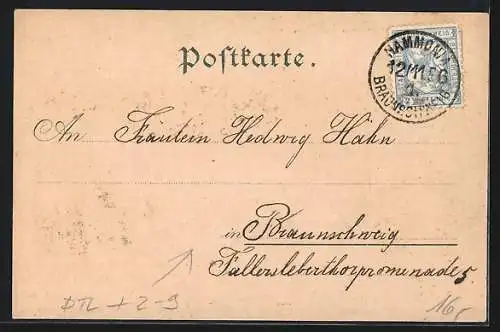 Postkarte.
HAMMONIA
12/11 96
BRAUNSCHWEIG
An Fräulein Hedwig Hahn
in Braunschweig
Fallersleberthorpromenade 5.
16,-